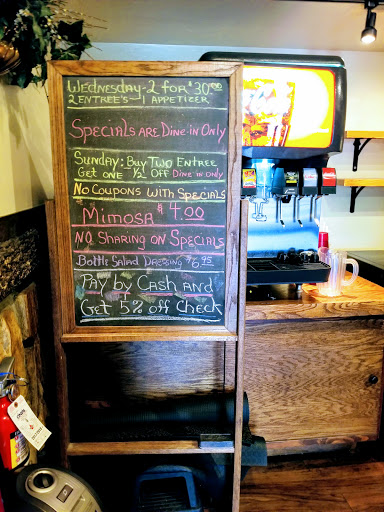 Wednesday-2 for $30.00
2 Entree's 1 Appetizer
Specials are Dine-in Only
Sunday: Buy Two Entree
Get one 1/2 Off Dine-in Only
No Coupons With Specials
Mimosa $4.00
No Sharing on Specials
Bottle Salad Dressing $6.95
Pay by Cash and
Get 5% off Check